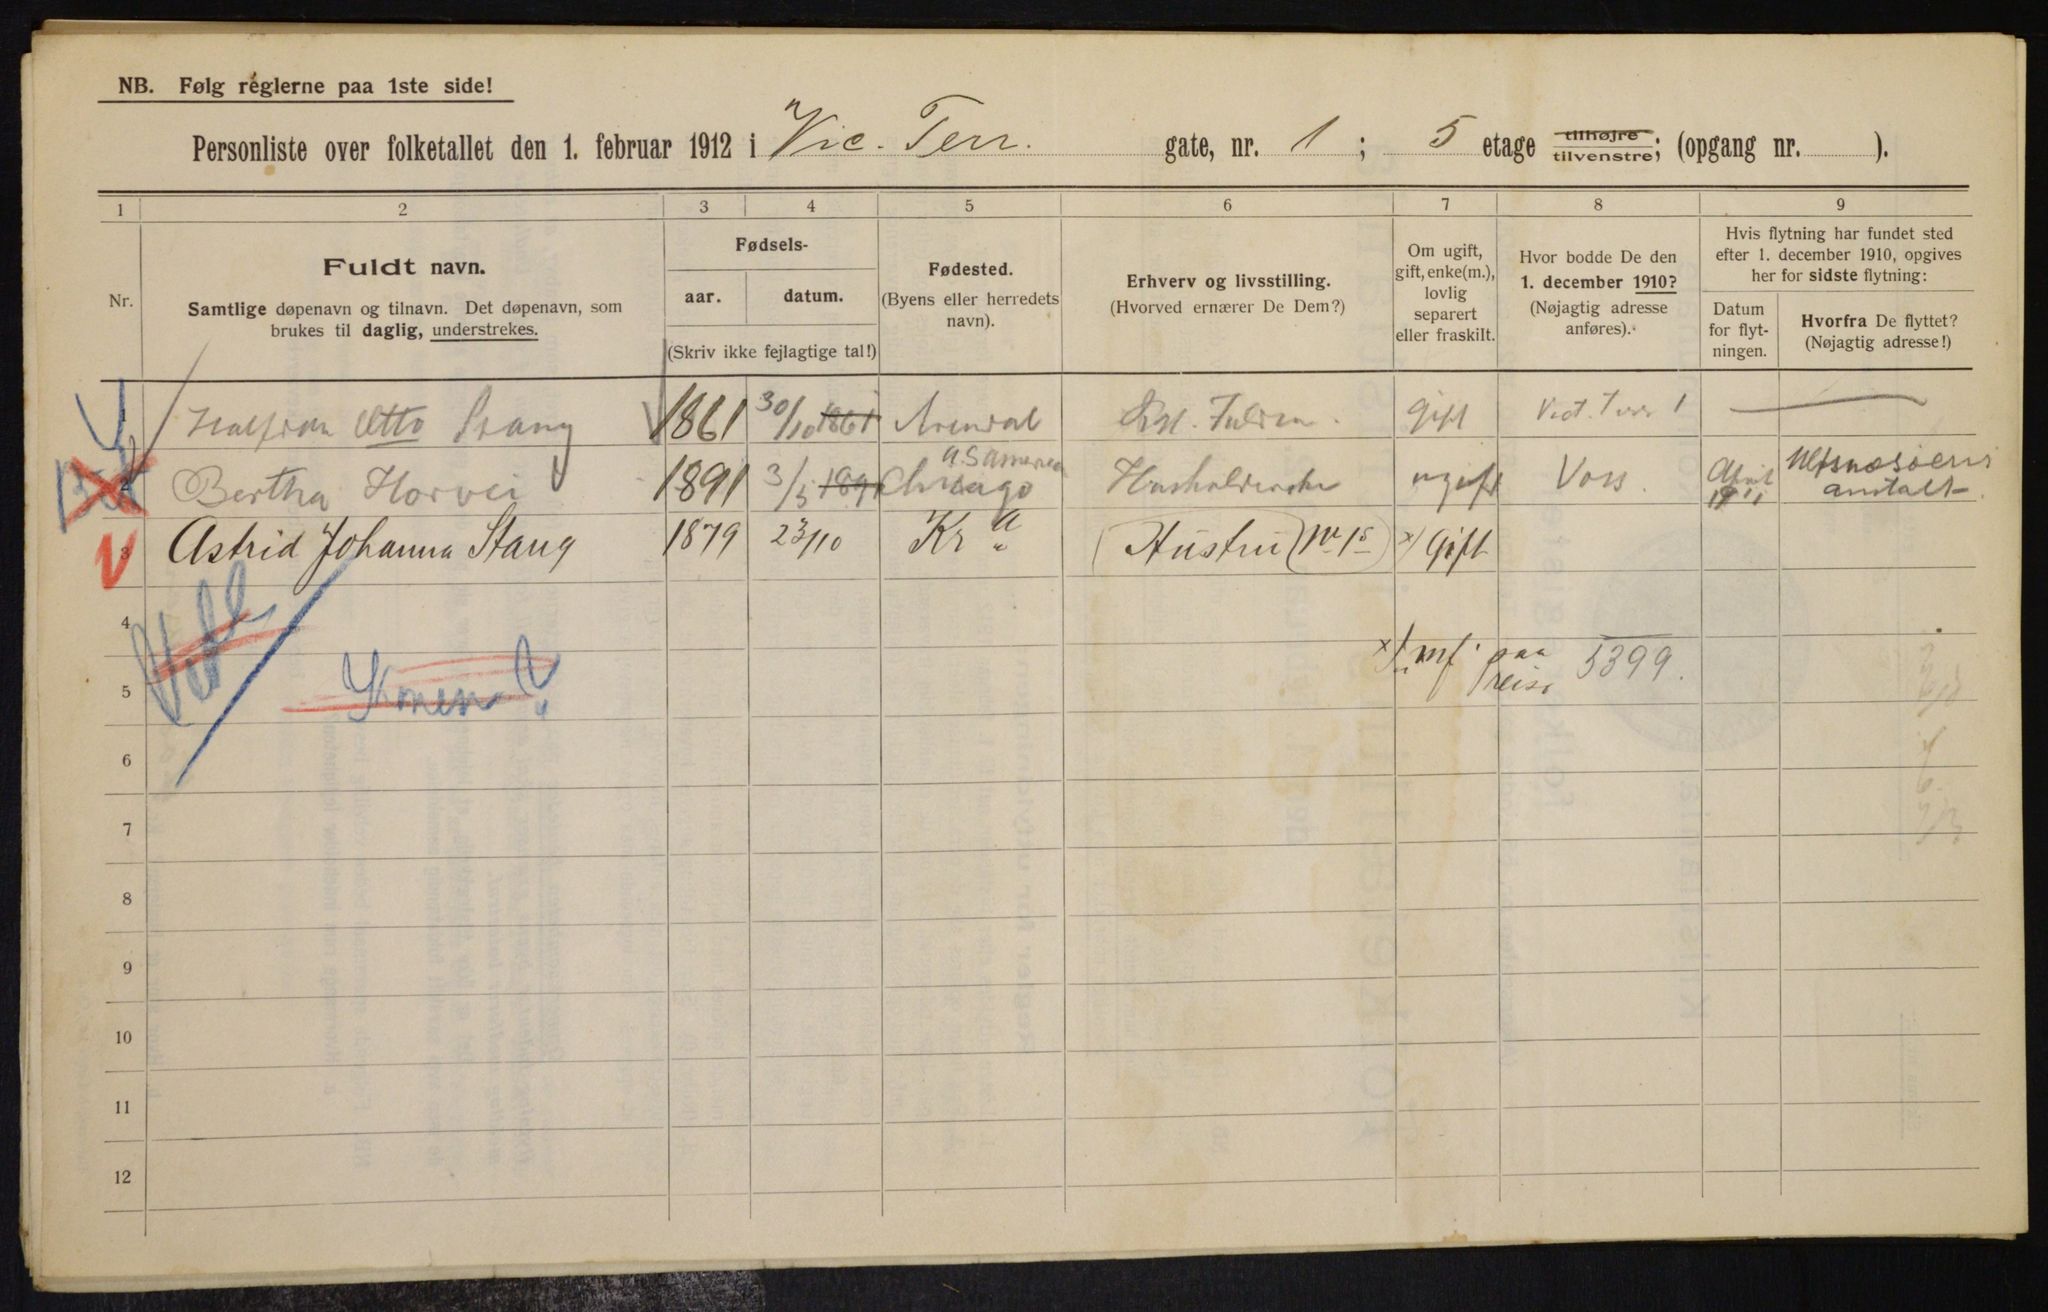 NB. Følg reglerne paa 1ste side!
Personliste over folketallet den 1. februar 1912 i Vic. Terr. gate, nr. 1 ; 5 etage tilhøjre tilvenstre; (opgang nr. ).
1 2 3 4 5 6 7 8 9
Nr.
Fuldt navn.
Samtlige døpenavn og tilnavn. Det døpenavn, som
brukes til daglig, understrekes.
Fødsels-
aar. datum.
(Skriv ikke fejlagtige tal!)
Fødested.
(Byens eller herredets
navn).
Erhverv og livsstilling.
(Hvorved ernærer De Dem?)
Om ugift,
gift, enke(m.),
lovlig
separert
eller fraskilt.
Hvor bodde De den
1. december 1910?
(Nøjagtig adresse
anføres).
Hvis flytning har fundet sted
efter 1. december 1910, opgives
her for sidste flytning:
Datum
for flyt-
ningen.
Hvorfra De flyttet?
(Nøjagtig adresse!)
1 Otto Stang 1861 30/10 1861 Arendal gift Vict. Terr 1
2 Bertha Horvei 1891 3/5 1891 Chicago ugift Voss. April 1911 anstalt
3 Astrid Johanna Stang 1879 23/10 Kr a (Hustru nr 1) x) Gift
4
x) mf. paa reise 5399.
5 Konen?
6
7
8
9
10
11
12